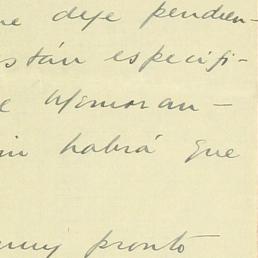 ne deje pendien-
stán especifi-
e Memoran-
in habrá que
muy pronto